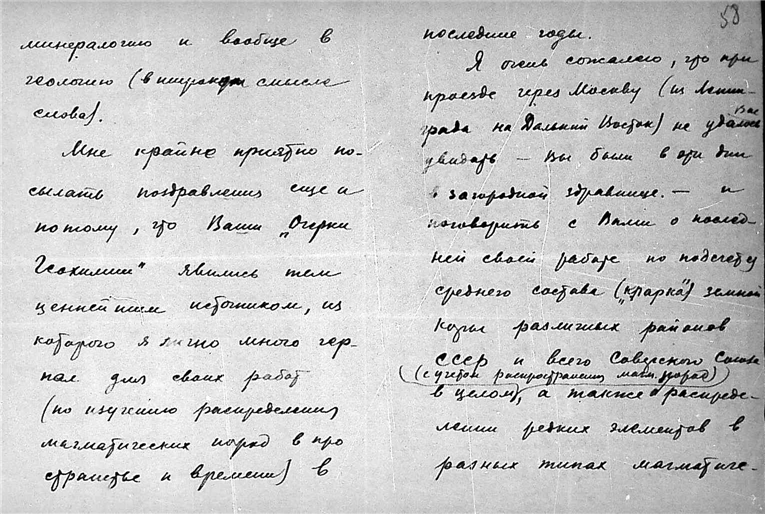 минералогию и вообще в
геологию (в широком смысле
слова).
Мне крайне приятно по-
сылать поздравления еще и
потому, что Ваши „Очерки
Геохимии" явились тем
ценнейшим источником, из
которого я лично много чер-
пал для своих работ
(по изучению распределения
магматических пород в про
странстве и времени) в
58
последние годы.
Я очень сожалею, что при
проезде через Москву (из Ленин-
града на Дальний Восток) не удалось
Вас
увидать – Вы были в эти дни
в загородной здравнице. – и
поговорить с Вами о послед-
ней своей работе по подсчету
среднего состава („кларка") земной
коры различных районов
СССР и всего Советского Союза
(с учетом распространения магм. пород)
в целом, а также о распреде-
лении редких элементов в
разных типах магматиче-